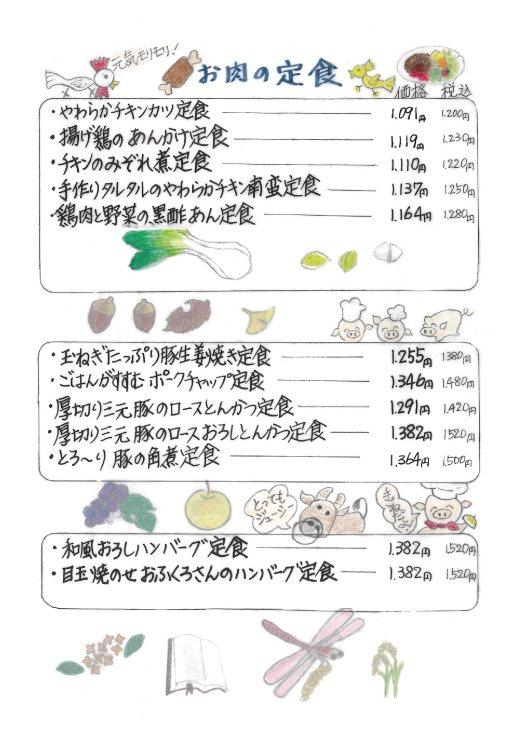 元気モリモリ!
お肉の定食
価格 税込
・やわらかチキンカツ定食 1.091円 1.200円
・揚げ鶏のあんかけ定食 1.119円 1.230円
・チキンのみぞれ煮定食 1.110円 1.220円
・手作りタルタルのやわらかチキン南蛮定食 1.137円 1.250円
・鶏肉と野菜の黒酢あん定食 1.164円 1.280円
・玉ねぎたっぷり豚生姜焼き定食 1.255円 1.380円
・ごはんがすすむ ポークチャップ定食 1.346円 1.480円
・厚切り三元豚のロースとんかつ定食 1.291円 1.420円
・厚切り三元豚のロースおろしとんかつ定食 1.382円 1520円
・とろ〜り豚の角煮定食 1.364円 1.500円
とっても
ジューシー
・和風おろしハンバーグ定食 1.382円 1.520円
・目玉焼のせおふくろさんのハンバーグ定食 1.382円 1.520円